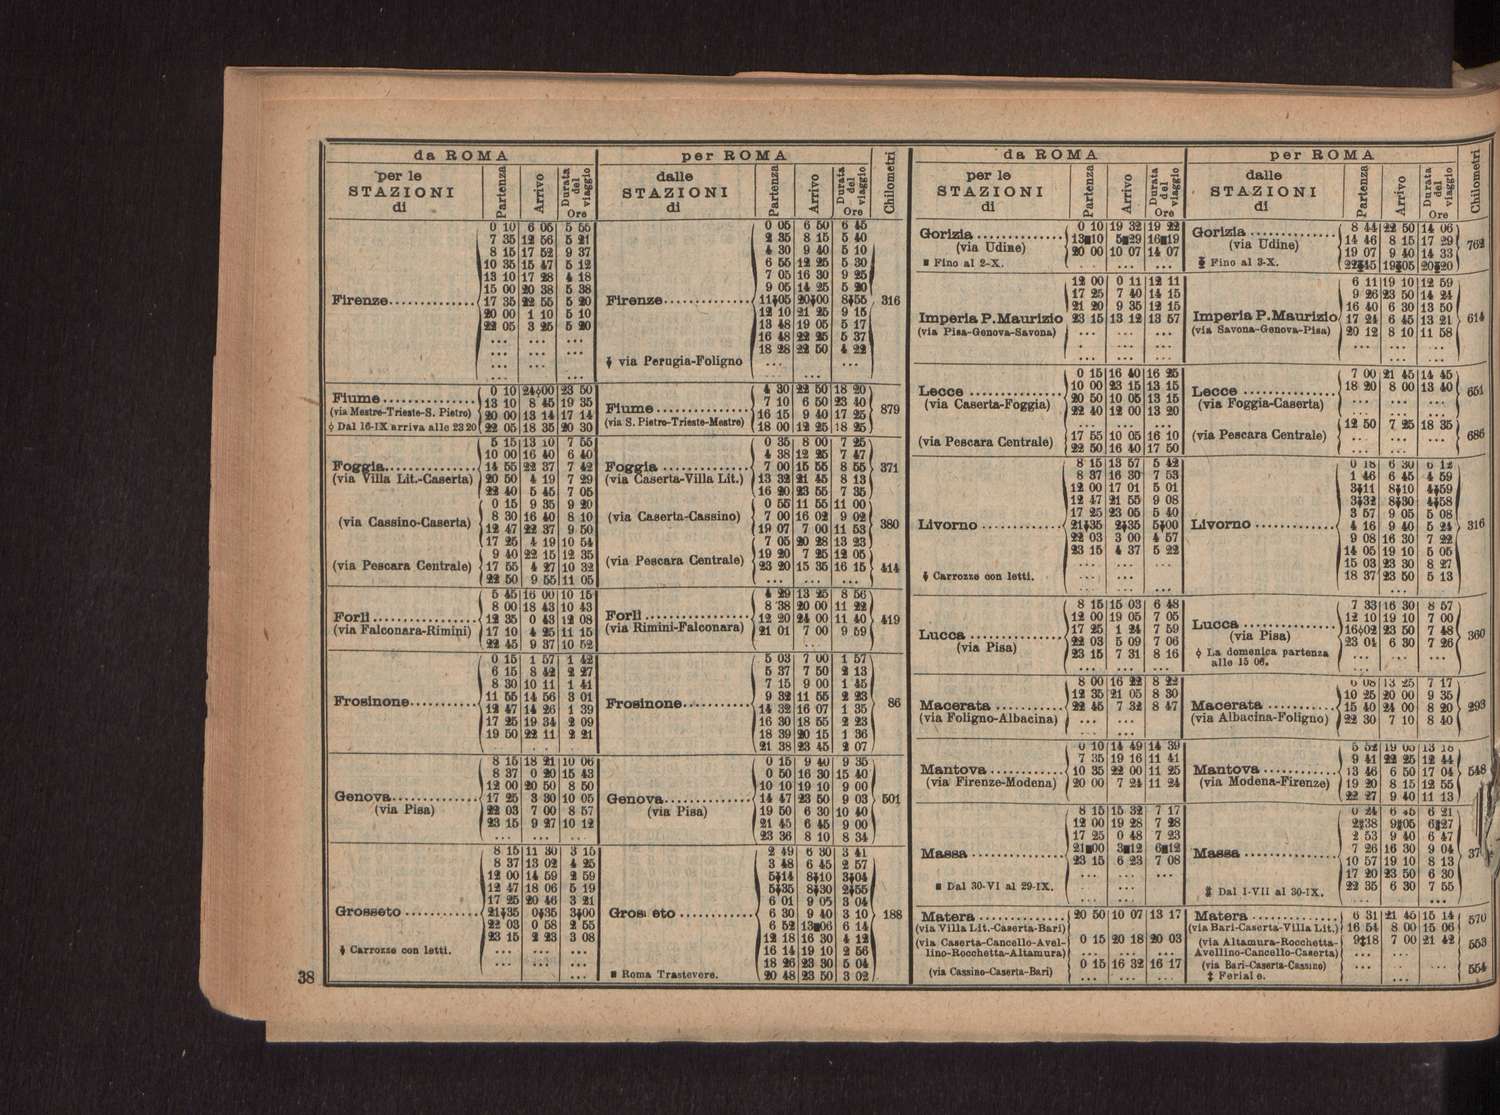 da ROMA
per le
STAZIONI
di
Partenza
Arrivo
Durata del viaggio
Ore
per ROMA
dalle
STAZIONI
di
Partenza
Arrivo
Durata del viaggio
Ore
Chilometri
Firenze
0 10 6 05 5 55
7 35 12 56 5 21
8 15 17 52 9 37
10 35 15 47 5 12
13 10 17 28 4 18
15 00 20 38 5 38
17 35 22 55 5 20
20 00 1 10 5 10
22 05 3 25 5 20
Firenze
0 05 6 50 6 45
2 35 8 15 5 40
4 30 9 40 5 10
6 55 12 25 5 30
7 05 16 30 9 25
9 05 14 25 5 20
11 05 20 00 8 55
12 10 21 25 9 15
13 48 19 05 5 17
16 48 22 25 5 37
18 28 22 50 4 22
via Perugia-Foligno
316
Fiume
(via Mestre-Trieste-S. Pietro)
Dal 16-IX arriva alle 23 20
0 10 24 00 23 50
13 10 8 45 19 35
20 00 13 14 17 14
22 05 18 35 20 30
Fiume
(via S. Pietro-Trieste-Mestre)
4 30 22 50 18 20
7 10 6 50 23 40
16 15 9 40 17 25
18 00 12 25 18 25
879
Foggia
(via Villa Lit.-Caserta)
5 15 13 10 7 55
10 00 16 40 6 40
14 55 22 37 7 42
20 50 4 19 7 29
22 40 5 45 7 05
(via Cassino-Caserta)
0 15 9 35 9 20
8 30 16 40 8 10
12 47 22 37 9 50
17 25 4 19 10 54
(via Pescara Centrale)
9 40 22 15 12 35
17 55 4 27 10 32
22 50 9 55 11 05
Foggia
(via Caserta-Villa Lit.)
0 35 8 00 7 25
4 38 12 25 7 47
7 00 15 55 8 55
13 32 21 45 8 13
16 20 23 55 7 35
371
(via Caserta-Cassino)
0 55 11 55 11 00
7 00 16 02 9 02
19 07 7 00 11 53
7 05 20 28 13 23
380
(via Pescara Centrale)
19 20 7 25 12 05
23 20 15 35 16 15
414
Forlì
(via Falconara-Rimini)
5 45 16 00 10 15
8 00 18 43 10 43
12 35 0 43 12 08
17 10 4 25 11 15
22 45 9 37 10 52
Forlì
(via Rimini-Falconara)
4 29 13 25 8 56
8 38 20 00 11 22
12 20 24 00 11 40
21 01 7 00 9 59
419
Frosinone
0 15 1 57 1 42
6 15 8 42 2 27
8 30 10 11 1 41
11 55 14 56 3 01
12 47 14 26 1 39
17 25 19 34 2 09
19 50 22 11 2 21
Frosinone
5 03 7 00 1 57
5 37 7 50 2 13
7 15 9 00 1 45
9 32 11 55 2 23
14 32 16 07 1 35
16 30 18 55 2 23
18 39 20 15 1 36
21 38 23 45 2 07
86
Genova
(via Pisa)
8 15 18 21 10 06
8 37 0 20 15 43
12 00 20 50 8 50
17 25 3 30 10 05
22 03 7 00 8 57
23 15 9 27 10 12
Genova
(via Pisa)
0 15 9 40 9 35
0 50 16 30 15 40
10 10 19 10 9 00
14 47 23 50 9 03
19 50 6 30 10 40
21 45 6 45 9 00
23 36 8 10 8 34
501
Grosseto
Carrozze con letti.
8 15 11 30 3 15
8 37 13 02 4 25
12 00 14 59 2 59
12 47 18 06 5 19
17 25 20 46 3 21
21 35 0 35 3 00
22 03 0 58 2 55
23 15 2 23 3 08
Grosseto
Roma Trastevere.
2 49 6 30 3 41
3 48 6 45 2 57
5 14 8 10 3 04
5 35 8 30 2 55
6 01 9 05 3 04
6 30 9 40 3 10
6 52 13 06 6 14
12 18 16 30 4 12
16 14 19 10 2 56
18 26 23 30 5 04
20 48 23 50 3 02
188
38
da ROMA
per le
STAZIONI
di
Partenza
Arrivo
Durata del viaggio
Ore
per ROMA
dalle
STAZIONI
di
Partenza
Arrivo
Durata del viaggio
Ore
Chilometri
Gorizia
(via Udine)
Fino al 2-X.
0 10 19 32 19 22
13 10 5 29 16 19
20 00 10 07 14 07
Gorizia
(via Udine)
Fino al 3-X.
8 44 22 50 14 06
14 46 8 15 17 29
19 07 9 40 14 33
22 45 19 05 20 20
762
Imperia P. Maurizio
(via Pisa-Genova-Savona)
12 00 0 11 12 11
17 25 7 40 14 15
21 20 9 35 12 15
23 15 13 12 13 57
Imperia P. Maurizio
(via Savona-Genova-Pisa)
6 11 19 10 12 59
9 26 23 50 14 24
16 40 6 30 13 50
17 24 6 45 13 21
20 12 8 10 11 58
614
Lecce
(via Caserta-Foggia)
0 15 16 40 16 25
10 00 23 15 13 15
20 50 10 05 13 15
22 40 12 00 13 20
(via Pescara Centrale)
17 55 10 05 16 10
22 50 16 40 17 50
Lecce
(via Foggia-Caserta)
7 00 21 45 14 45
18 20 8 00 13 40
651
(via Pescara Centrale)
12 50 7 25 18 35
686
Livorno
Carrozze con letti.
8 15 13 57 5 42
8 37 16 30 7 53
12 00 17 01 5 01
12 47 21 55 9 08
17 25 23 05 5 40
21 35 2 35 5 00
22 03 3 00 4 57
23 15 4 37 5 22
Livorno
0 18 6 30 6 12
1 46 6 45 4 59
3 11 8 10 4 59
3 32 8 30 4 58
3 57 9 05 5 08
4 16 9 40 5 24
9 08 16 30 7 22
14 05 19 10 5 05
15 03 23 30 8 27
18 37 23 50 5 13
316
Lucca
(via Pisa)
8 15 15 03 6 48
12 00 19 05 7 05
17 25 1 24 7 59
22 03 5 09 7 06
23 15 7 31 8 16
Lucca
(via Pisa)
La domenica partenza
alle 15 06.
7 33 16 30 8 57
12 10 19 10 7 00
16 02 23 50 7 48
23 04 6 30 7 26
360
Macerata
(via Foligno-Albacina)
8 00 16 22 8 22
12 35 21 05 8 30
22 45 7 32 8 47
Macerata
(via Albacina-Foligno)
6 08 13 25 7 17
10 25 20 00 9 35
15 40 24 00 8 20
22 30 7 10 8 40
293
Mantova
(via Firenze-Modena)
0 10 14 49 14 39
7 35 19 16 11 41
10 35 22 00 11 25
20 00 7 24 11 24
Mantova
(via Modena-Firenze)
5 52 19 05 13 13
9 41 22 25 12 44
13 46 6 50 17 04
19 20 8 15 12 55
22 27 9 40 11 13
548
Massa
Dal 30-VI al 29-IX.
8 15 15 32 7 17
12 00 19 28 7 28
17 25 0 48 7 23
21 00 3 12 6 12
23 15 6 23 7 08
Massa
Dal 1-VII al 30-IX.
0 24 6 45 6 21
2 38 9 05 6 27
2 53 9 40 6 47
7 26 16 30 9 04
10 57 19 10 8 13
17 20 23 50 6 30
22 35 6 30 7 55
Matera
(via Villa Lit.-Caserta-Bari)
20 50 10 07 13 17
(via Caserta-Cancello-Avel-
lino-Rocchetta-Altamura)
0 15 20 18 20 03
(via Cassino-Caserta-Bari)
0 15 16 32 16 17
Matera
(via Bari-Caserta-Villa Lit.)
6 31 21 45 15 14
16 54 8 00 15 06
570
(via Altamura-Rocchetta-
Avellino-Cancello-Caserta)
9‡18 7 00 21 42
553
(via Bari-Caserta-Cassino)
‡ Feriale.
554